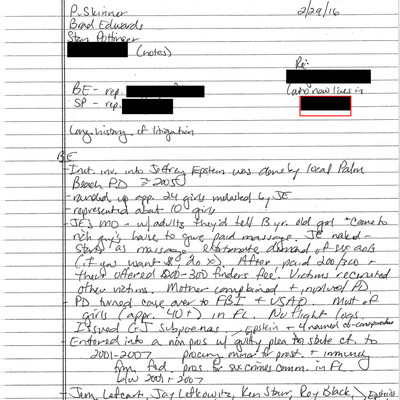 P. Skinner 2/29/16
Brad Edwards
Stan Pottinger
(notes) Re:
BE - rep. (who now lives in
SP - rep.
Long history of litigation
BE
- Init. inv. into Jeffrey Epstein was done by local Palm
Beach PD ≈ 2005
- rounded up app. 24 girls molested by JE
- represented about 10 girls
- JE's MO - w/adults they'd tell 13 yr. old girl "Come to
rich guy's house to give paid massage. JE naked -
starts as massage & demand of sex acts
(if you want $ do x). After paid 200/300 +
then offered $200-300 finders fee. Victims recruited
other victims. Mother complained + involved PD.
PD turned case over to FBI + USAO. Most of
girls (appr. 40+) in FL. No flight logs.
Issued GJ subpoenas - Epstein + 4 named co-conspirators
- Entered into a non pros w/ guilty plea to state ct. to
2001-2007 procuring minor for prost. + immunity
from fed. pros. for sex crimes comm. in FL
b/w 2001 + 2007
- Jay Lefkowitz, Ken Starr, Roy Black, Epstein's